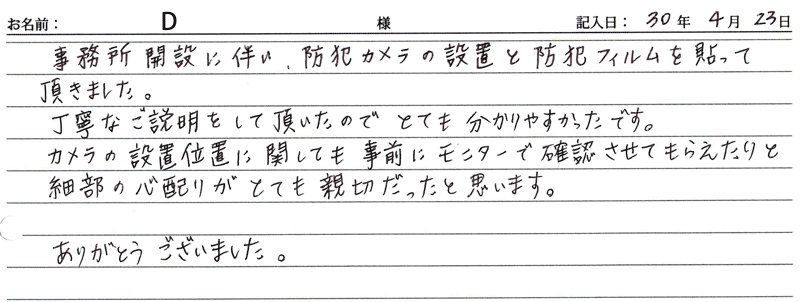 お名前： D 様 記入日： 30 年 4 月 23 日
事務所開設に伴い、防犯カメラの設置と防犯フィルムを貼って
頂きました。
丁寧なご説明をして頂いたのでとても分かりやすかったです。
カメラの設置位置に関しても事前にモニターで確認させてもらえたりと
細部の心配りがとても親切だったと思います。
ありがとうございました。